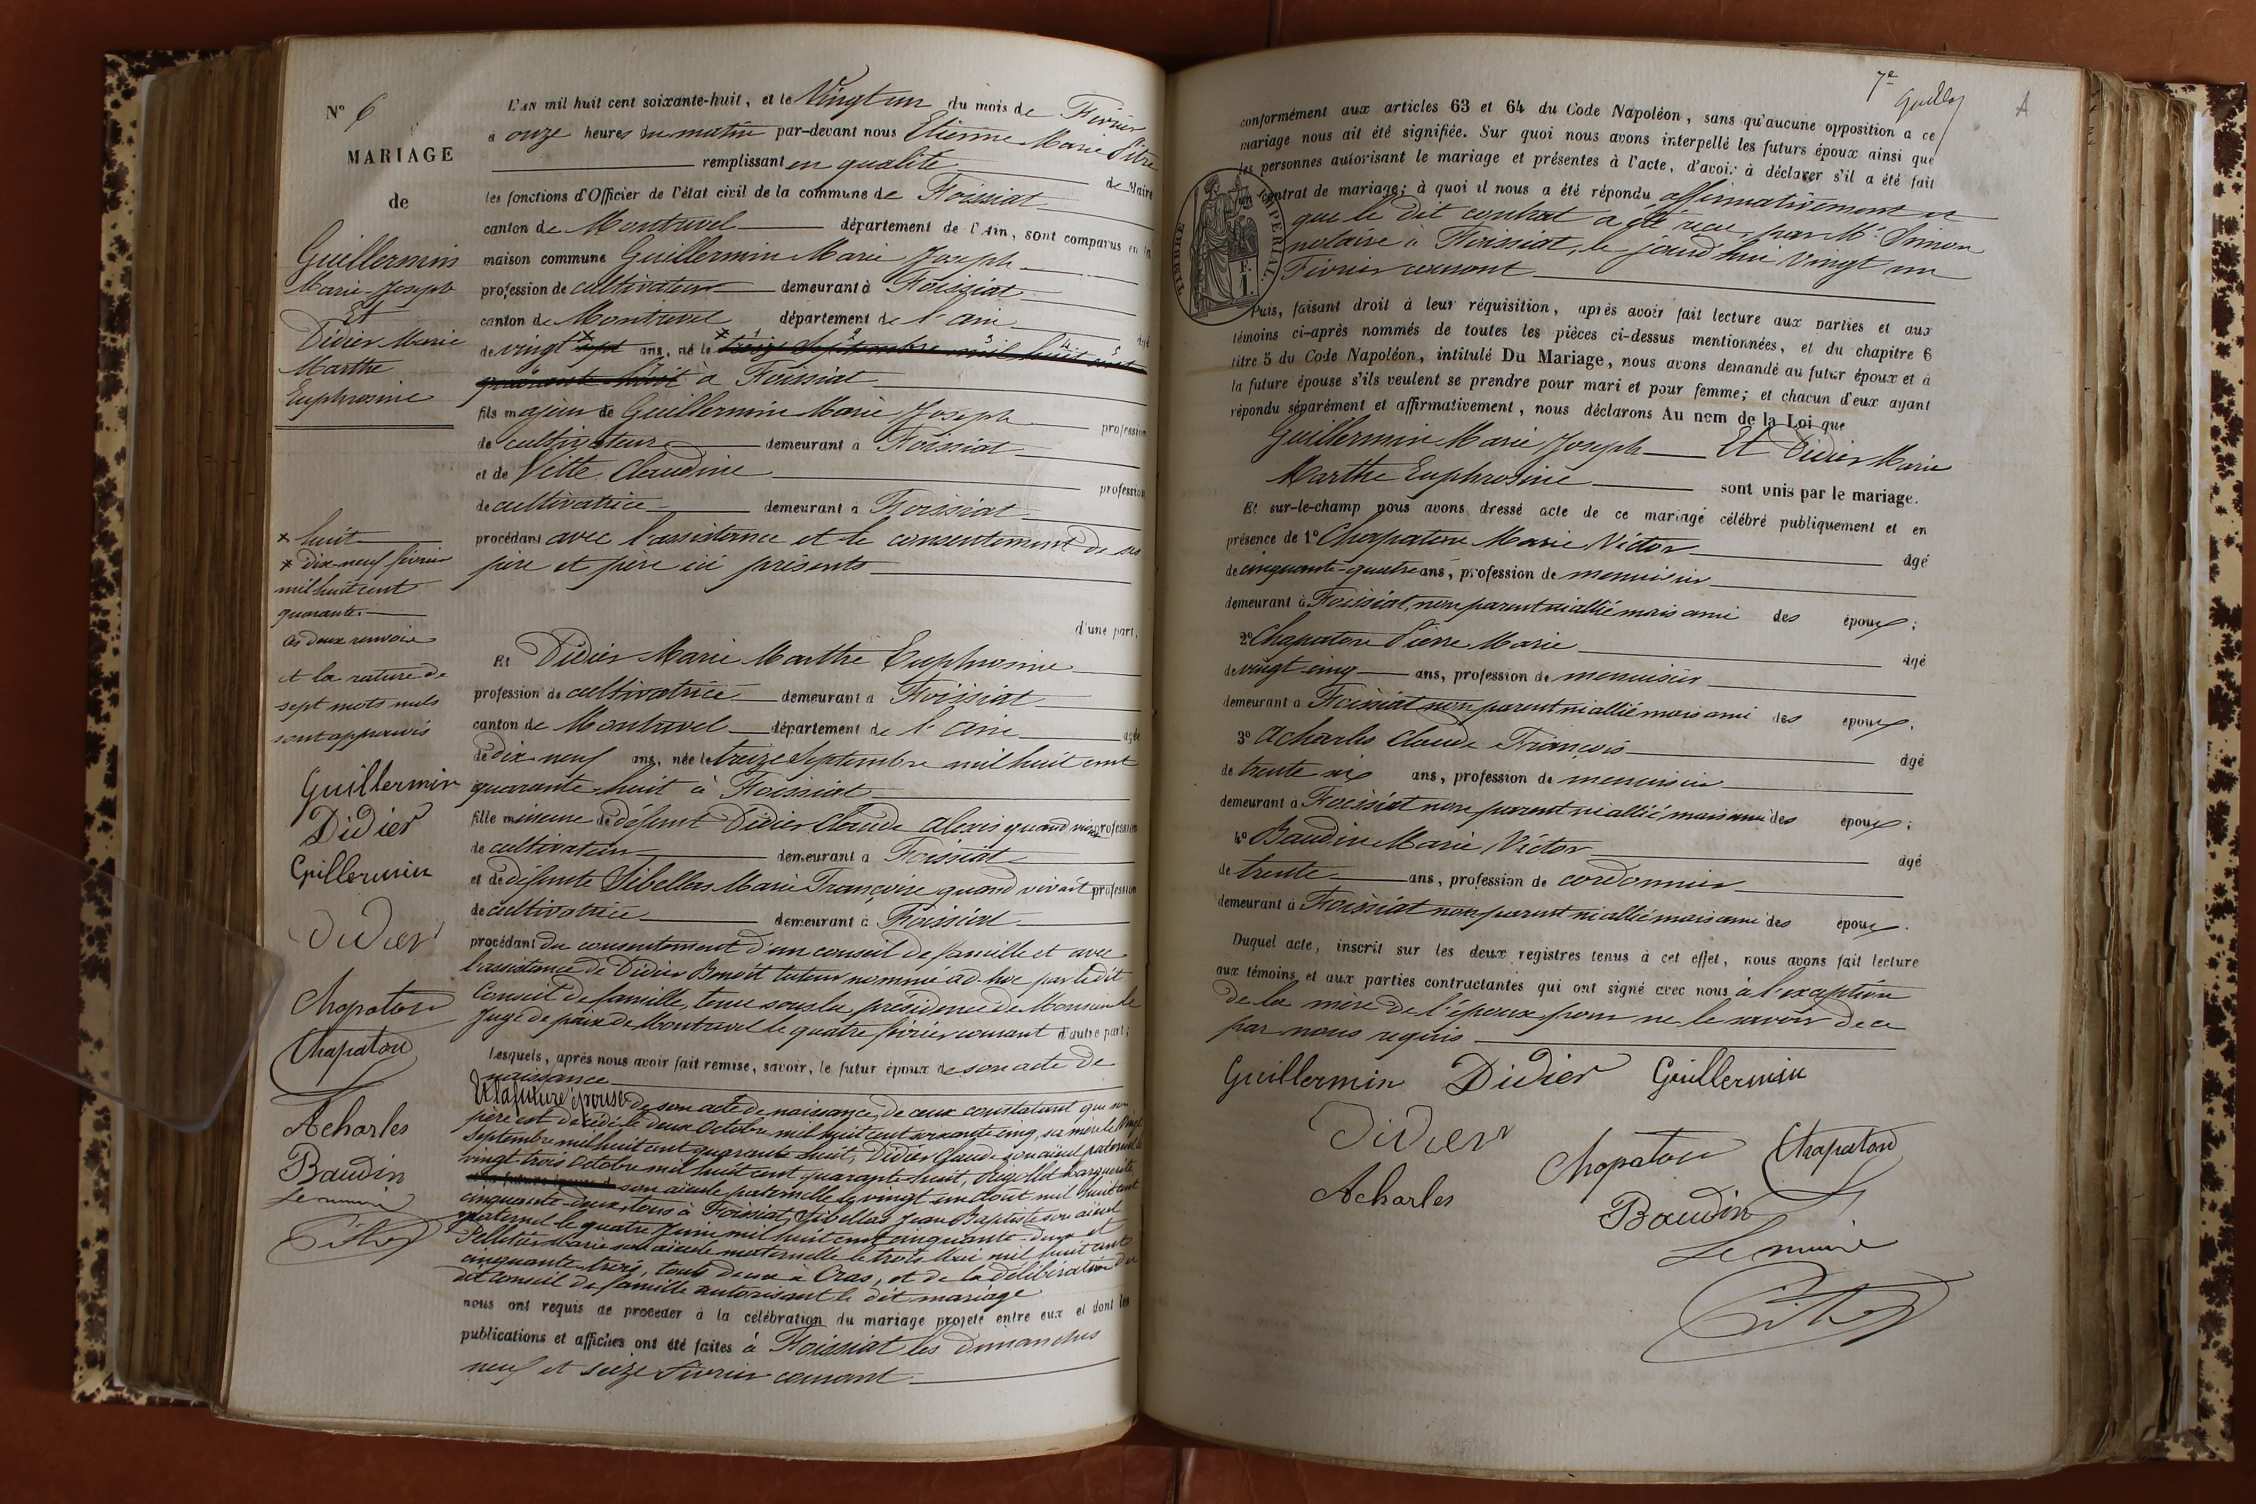 N° 6
MARIAGE
de
Guillermin
Marie Joseph
Et
Didier Marie
Marthe
Euphrosine
× huit
× dix-neuf février
mil huit cent
quarante.
Ces deux renvois
et la rature de
sept mots nuls
sont approuvés
Guillermin
Didier
Guillermin
Didier
Chapaton
Chapaton
Acharles
Baudin
Le maire
L'AN mil huit cent soixante-huit, et le Vingt un du mois de Février
a onze heures du matin par-devant nous Etienne Marie Pitre
remplissant en qualité de Maire
les fonctions d'Officier de l'état civil de la commune de Foissiat
canton de Montrevel département de l'Ain, sont comparus en la
maison commune Guillermin Marie Joseph
profession de cultivateur demeurant à Foissiat
canton de Montrevel département de l'ain âgé
de vingt sept ans, né le treize Septembre mil huit cent
quarante huit à Foissiat
fils majeur de Guillermin Marie Joseph profession
de cultivateur demeurant a Foissiat
et de Vitte Claudine profession
de cultivatrice demeurant a Foissiat
procédant avec l'assistance et le consentement de ses
père et père ici présents
d'une part,
Et Didier Marie Marthe Euphrosine
profession de cultivatrice demeurant a Foissiat
canton de Montrevel département de l'ain agée
de dix neuf ans, née le treize Septembre mil huit cent
quarante huit à Foissiat
fille mineure de défunt Didier Claude Alexis quand vivait profession
de cultivateur demeurant a Foissiat
et de défunte Sibellas Marie Françoise quand vivait profession
de cultivatrice demeurant à Foissiat
procédant du consentement d'un conseil de famille et avec
l'assistance de Didier Benoît tuteur nommé ad-hoc par le dit
Conseil de famille, tenu sous la présidence de Monsieur le
Juge de paix de Montrevel le quatre février courant d'autre part;
Lesquels, après nous avoir fait remise, savoir, le futur époux de son acte de
naissance
Et la future épouse de son acte de naissance, de ceux constatant que son
père est décédé le deux Octobre mil huit cent soixante cinq, sa mère le Vingt
Septembre mil huit cent quarante huit, Didier Claude son aïeul paternel le
vingt trois Octobre mil huit cent quarante huit, Rigollet Marguerite
son aïeule paternelle le vingt un Aout mil huit cent
cinquante-deux, tous à Foissiat, Sibellas Jean Baptiste son aïeul
maternel le quatre Juin mil huit cent cinquante-deux et
Pelletier Marie son aïeule maternelle le trois Mai mil huit cent
cinquante trois, tous deux à Cras, et de la délibération du
dit conseil de famille autorisant le dit mariage
nous ont requis de proceder à la célébration du mariage projeté entre eux et dont les
publications et affiches ont été faites à Foissiat les dimanches
neuf et seize Février courant
7e
A
conformément aux articles 63 et 64 du Code Napoléon, sans qu'aucune opposition a ce
mariage nous ait été signifiée. Sur quoi nous avons interpellé les futurs époux ainsi que
les personnes autorisant le mariage et présentes à l'acte, d'avoir à déclarer s'il a été fait
un contrat de mariage; à quoi il nous a été répondu affirmativement et
que le dit contrat a été reçu par Me Simon
notaire à Foissiat, le jourd'hui Vingt un
Février courant
TIMBRE IMPERIAL
F.
1.
Puis, faisant droit à leur réquisition, après avoir fait lecture aux parties et aux
témoins ci-après nommés de toutes les pièces ci-dessus mentionnées, et du chapitre 6
titre 5 du Code Napoléon, intitulé Du Mariage, nous avons demandé au futur époux et à
la future épouse s'ils veulent se prendre pour mari et pour femme; et chacun d'eux ayant
répondu séparément et affirmativement, nous déclarons Au nom de la Loi que
Guillermin Marie Joseph Et Didier Marie
Marthe Euphrosine sont unis par le mariage.
Et sur-le-champ nous avons dressé acte de ce mariage célébré publiquement et en
présence de 1° Chapaton Marie Victor âgé
de cinquante-quatre ans, profession de menuisier
demeurant à Foissiat, non parent ni allié mais ami des époux;
2° Chapaton Pierre Marie âgé
de vingt cinq ans, profession de menuisier
demeurant a Foissiat non parent ni allié mais ami des époux.
3° Acharles Claude François âgé
de trente six ans, profession de menuisier
demeurant à Foissiat non parent ni allié mais ami des époux;
4° Baudin Marie Victor âgé
de trente ans, profession de cordonnier
demeurant à Foissiat non parent ni allié mais ami des époux.
Duquel acte, inscrit sur les deux registres tenus à cet effet, nous avons fait lecture
aux témoins et aux parties contractantes qui ont signé avec nous à l'exception
de la mère de l'époux pour ne le savoir de ce
par nous requis
Guillermin Didier Guillermin
Didier Chapaton Chapaton
Acharles Baudin
Le maire